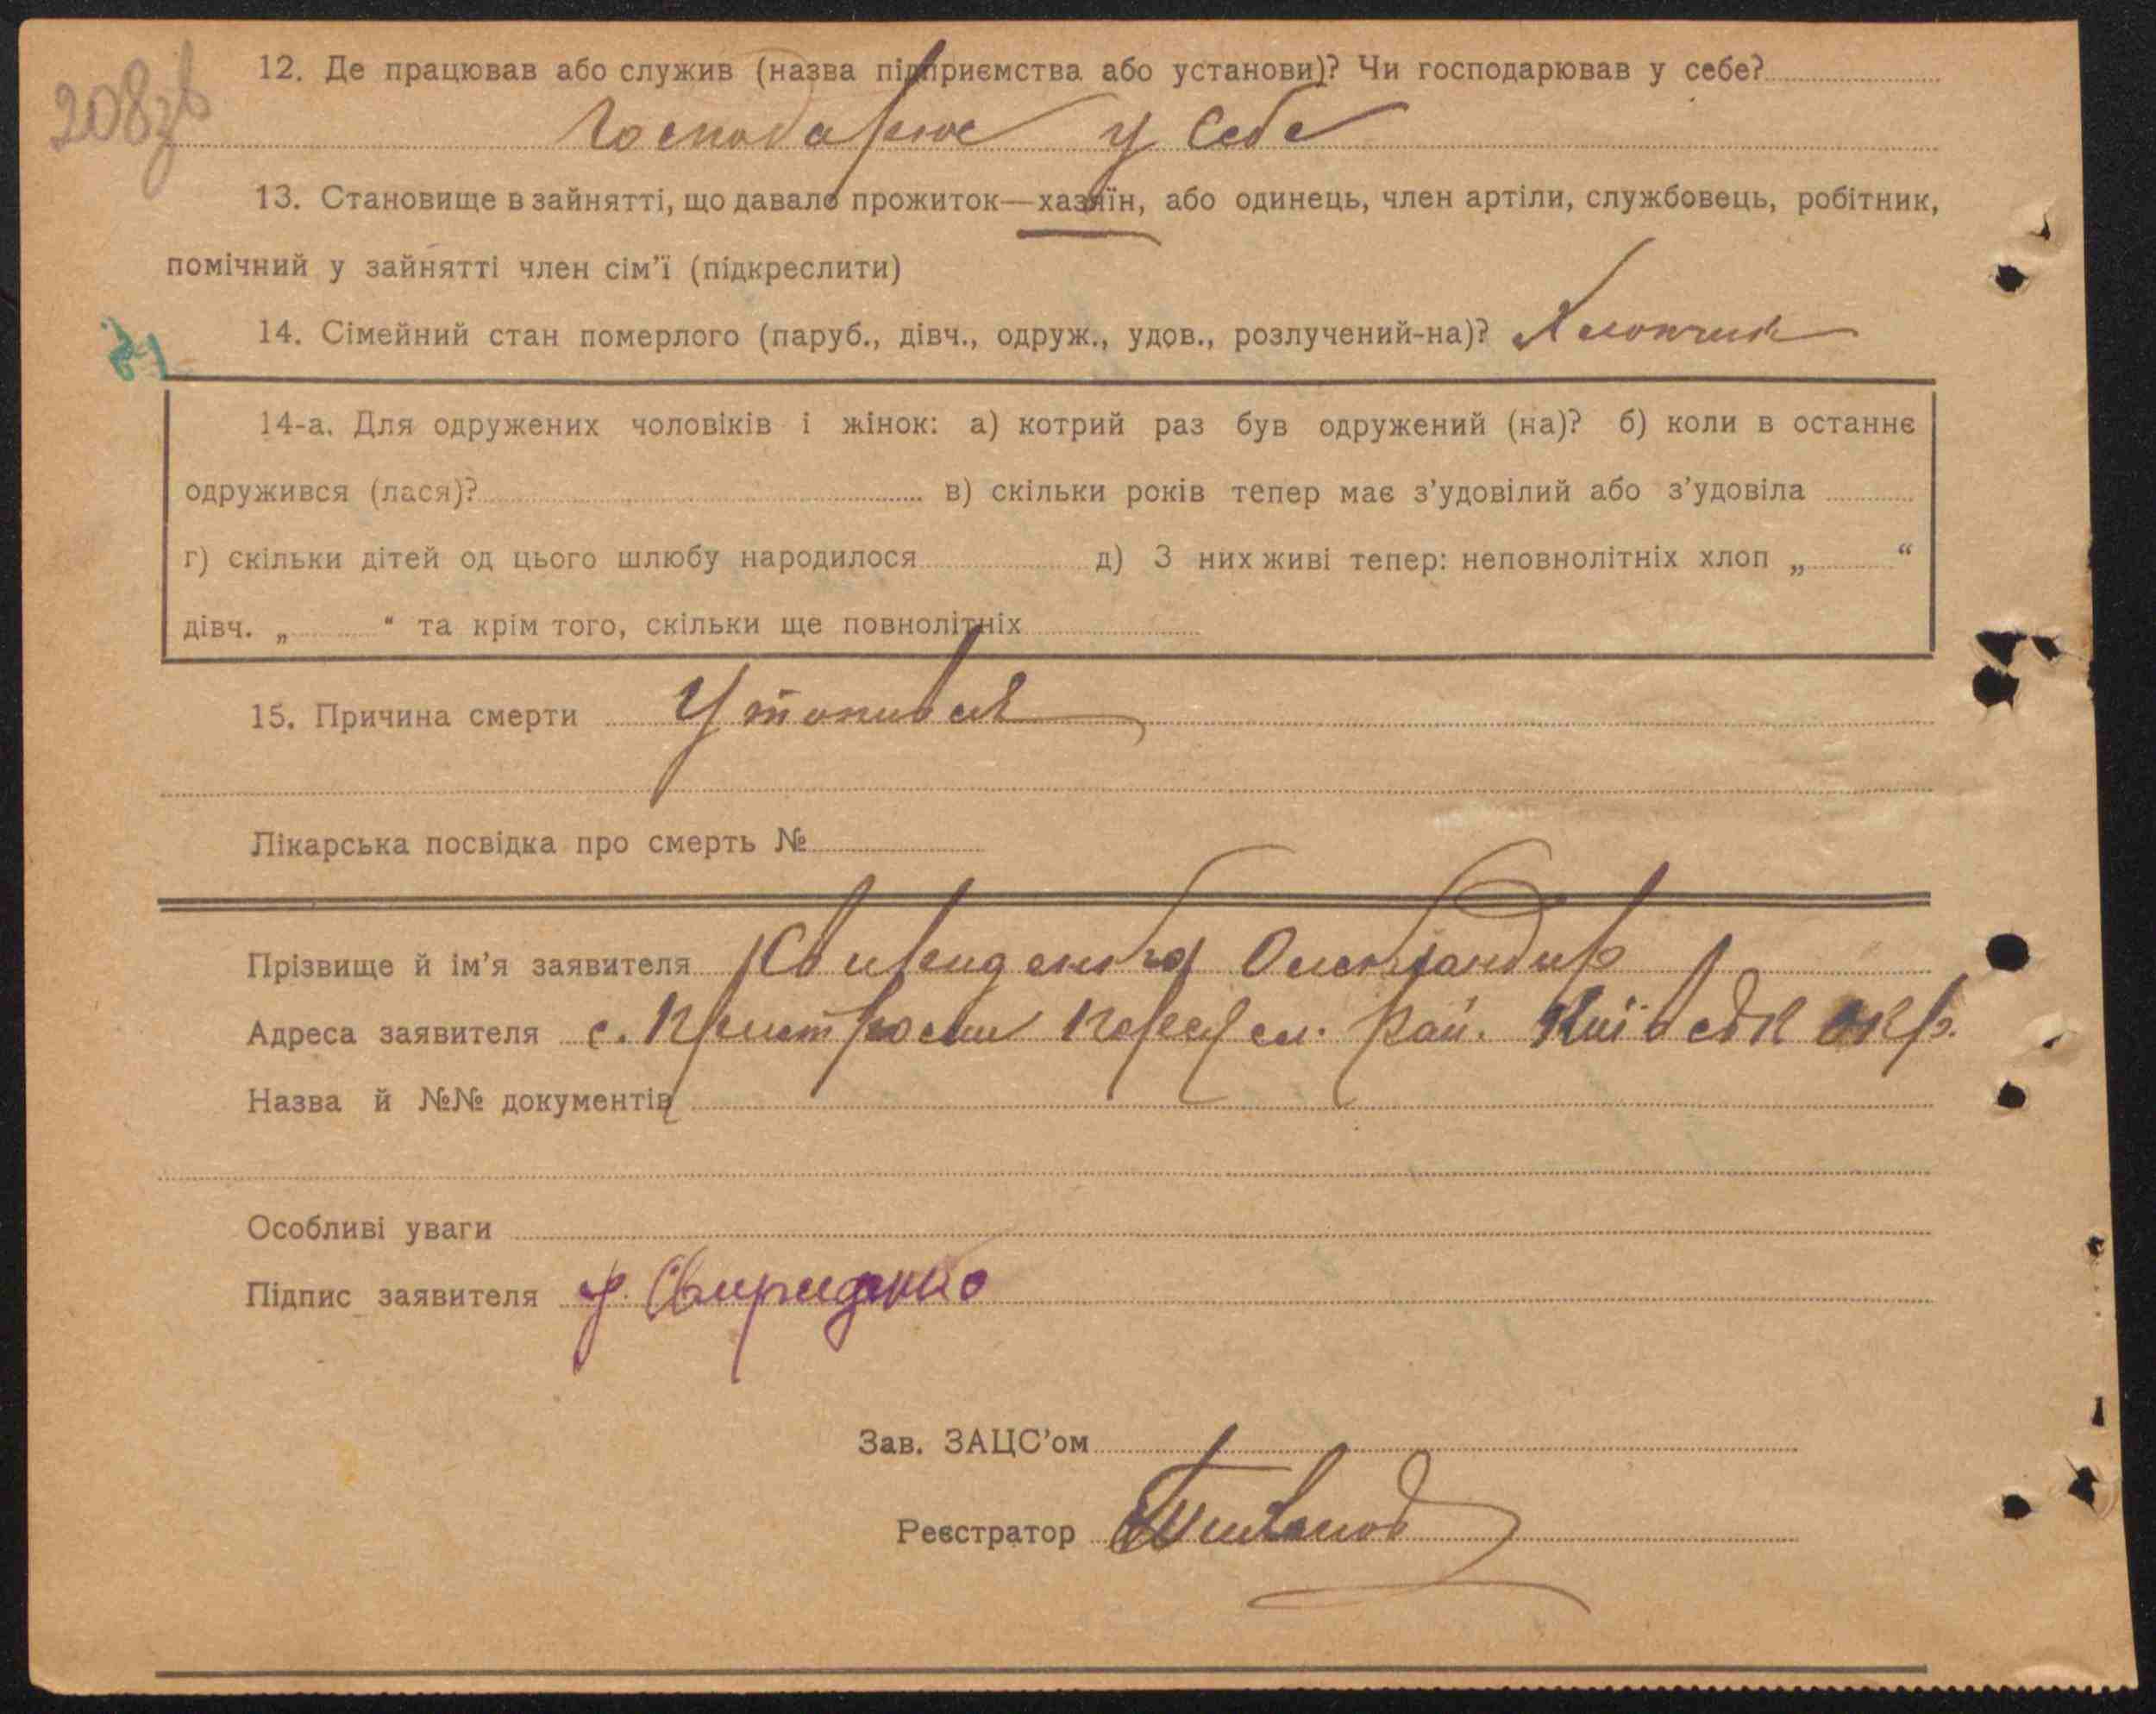 208зв
12. Де працював або служив (назва підприємства або установи)? Чи господарював у себе?
Господарює у себе
13. Становище в зайнятті, що давало прожиток—хазяїн, або одинець, член артіли, службовець, робітник,
помічний у зайнятті член сім'ї (підкреслити)
14. Сімейний стан померлого (паруб., дівч., одруж., удов., розлучений-на)? Хлопчик
14-а. Для одружених чоловіків і жінок: а) котрий раз був одружений (на)? б) коли в останнє
одружився (лася)? в) скільки років тепер має з'удовілий або з'удовіла
г) скільки дітей од цього шлюбу народилося д) З них живі тепер: неповнолітніх хлоп „ “
дівч. „ “ та крім того, скільки ще повнолітніх
15. Причина смерти Утопився
Лікарська посвідка про смерть №
Прізвище й ім'я заявителя Свириденко Олександир
Адреса заявителя с. рай. Київськ окр.
Назва й №№ документів
Особливі уваги
Підпис заявителя Свириденко
Зав. ЗАЦС'ом
Реєстратор